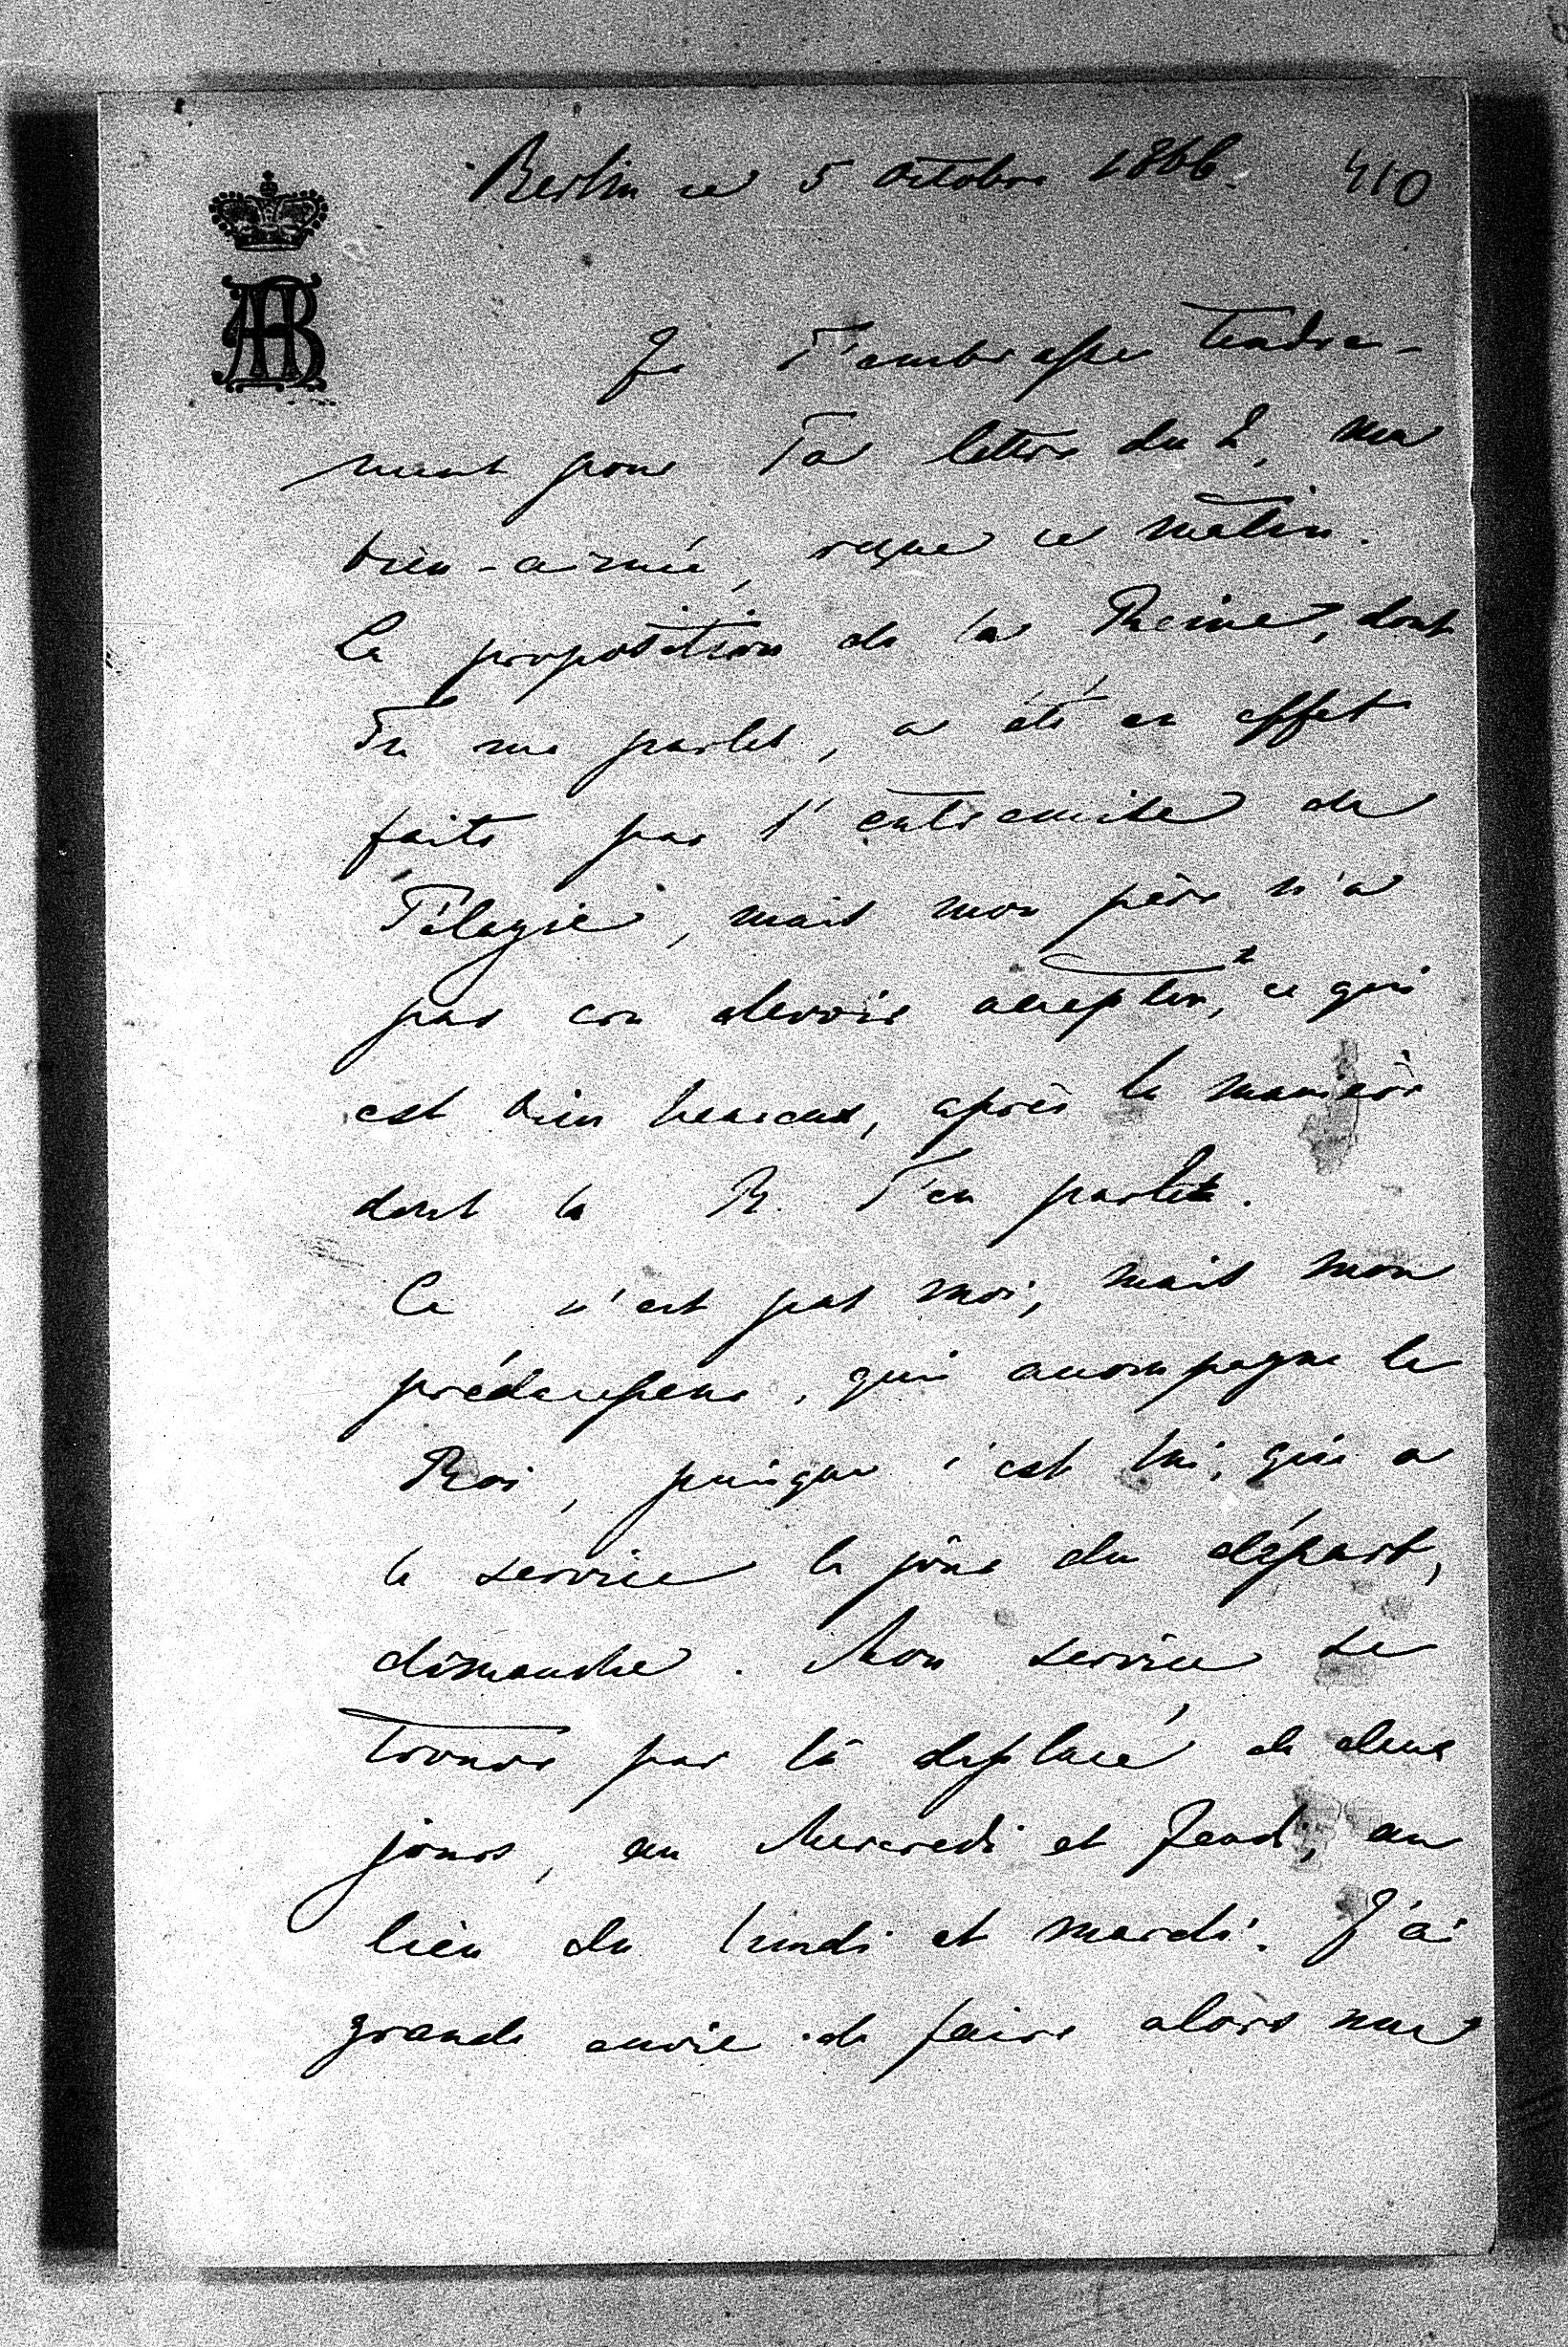 Berlin ce 5 Octobre 1866. 410
Je T'embrasse tendre-
ment pour Ta lettre du 2, ma
bien-aimée, reçue ce matin.
La proposition de la Reine, dont
Tu me parles, a été en effet
faite par l'entremise de
Pélagie, mais mon père n'a
pas cru devoir accepter, ce qui
est bien heureux, après la manière
dont la R. T'en parle.
Ce n'est pas moi, mais mon
prédecesseur, qui accompagne le
Roi, puisque c'est lui, qui a
le service le jour du départ,
dimanche. Mon service se
trouve par là deplacé de deux
jours, au Mercredi et Jeudi, au
lieu du lundi et mardi. J'ai
grande envie de faire alors une